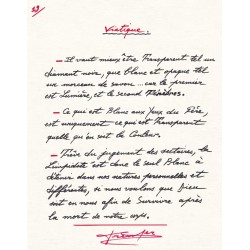 29/
Viatique.
— Il vaut mieux être Transparent tel un
diamant noir, que blanc et opaque tel
un morceau de savon... car le premier
est Lumière, et le second Ténèbres.
— Ce qui est Blanc aux Yeux du Père,
est uniquement ce qui est Transparent
quelle qu'en soit la Couleur.
— Trêve du jugement des sectaires, la
Limpidité est donc le seul Blanc à
détenir dans nos natures personnelles et
différentes, si nous voulons que Dieu
soit en nous afin de Survivre après
la mort de notre corps.